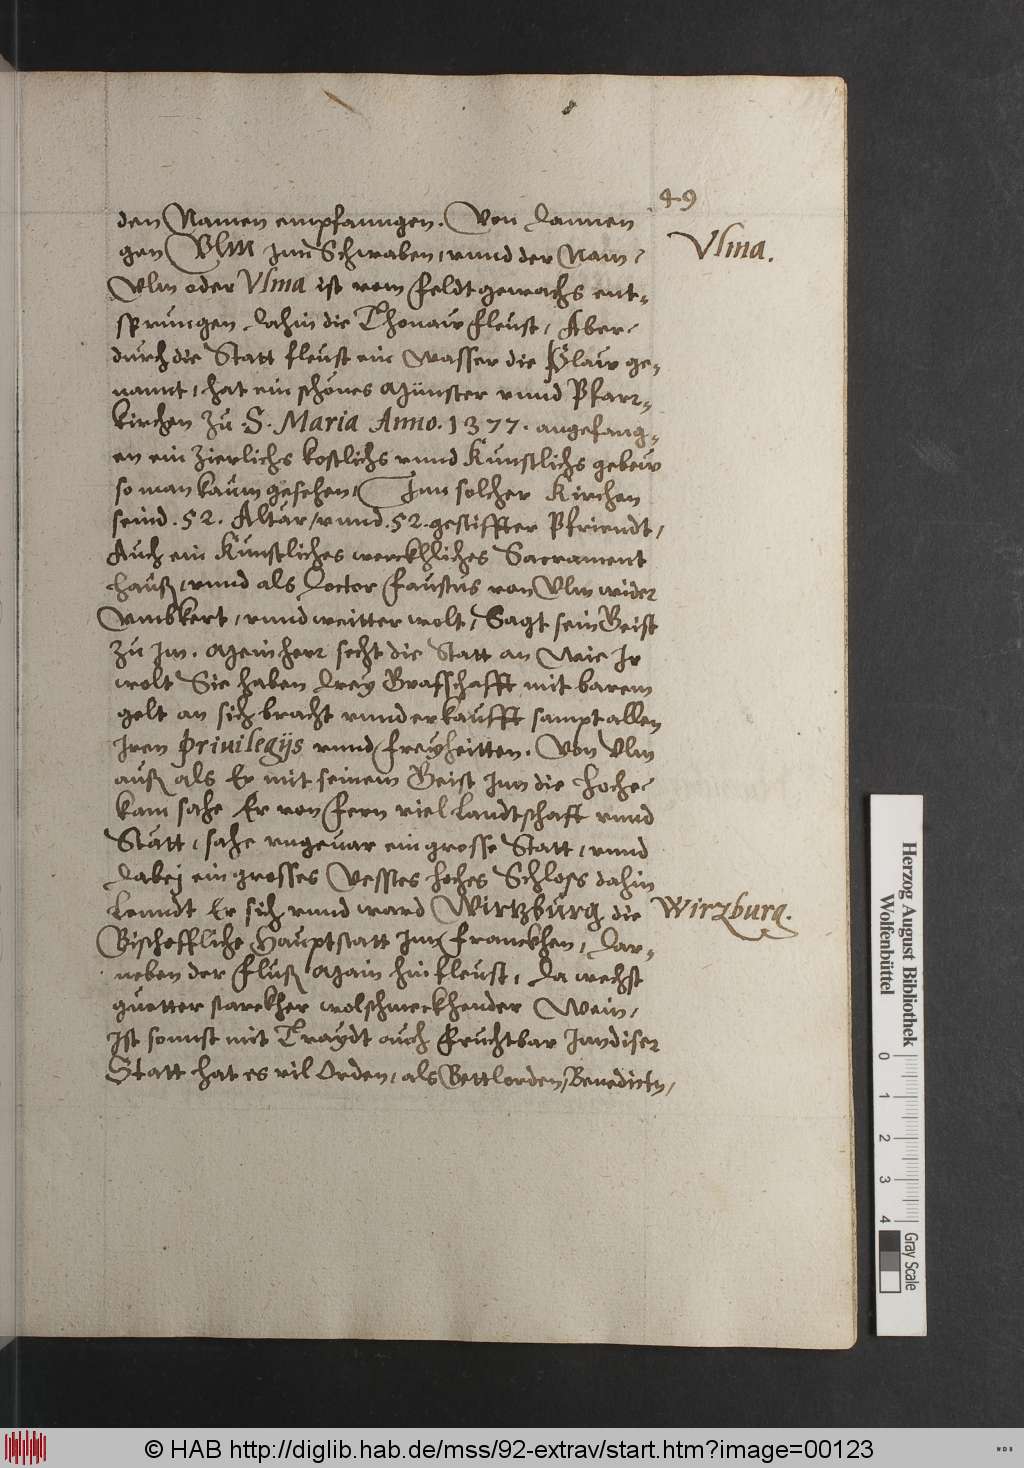 49
den Namen empfanngen. Von dannen
gen Vlm inn Schwaben, vnnd der Nam
Vlma.
Vlm oder Vlma ist vom Feldtgewechs ent-
sprungen, dahin die Thonaw fleust, Aber
durch die Statt fleust ein wasser die Blaw ge-
nannt, hat ein schönes Münster vnnd Pfarr-
kirchen zu .S. Maria Anno. 1377. angefang-
en ein zierlichs kostlichs vnnd Kunstlichs gebew
so man kaum gesehen, Inn solcher Kirchen
seind .52. Altar, vnnd .52. gestiffter Pfriendt,
Auch ein Kunstliches werckhliches Sacrament
hauß, vnnd als Doctor Faustus von Vlm wider
vmbkert, vnnd weitter wolt, Sagt sein Geist
zu Im. Mein herr secht die Statt an wie Ir
wolt Sie haben drey Graffschafft mit barem
gelt an sich bracht vnnd erkaufft sampt allen
Iren Priuilegijs vnnd Freyheitten. Von Vlm
auß als Er mit seinem Geist Inn die höche
kam sahe Er von fern viel Landtschafft vnnd
Statt, sahe vngeuar ein grosse Statt, vnnd
dabej ein grosses Vesstes hohes Schloss dahin
lenndt Er sich vnnd ward Wirtzburg die
Wirzburg.
Bischoffliche Hauptstatt Inn Franckhen, dar-
neben der Fluß Main hin fleust, da wechst
guetter starckher wolschmeckhender Wein,
Ist sonnst mit Traydt auch fruchtbar Inn diser
Statt hat es vil Orden, als Bettlorden, Benedictn,
Herzog August Bibliothek
Wolfenbüttel
0 1 2 3 4
Gray Scale
© HAB http://diglib.hab.de/mss/92-extrav/start.htm?image=00123
WDB